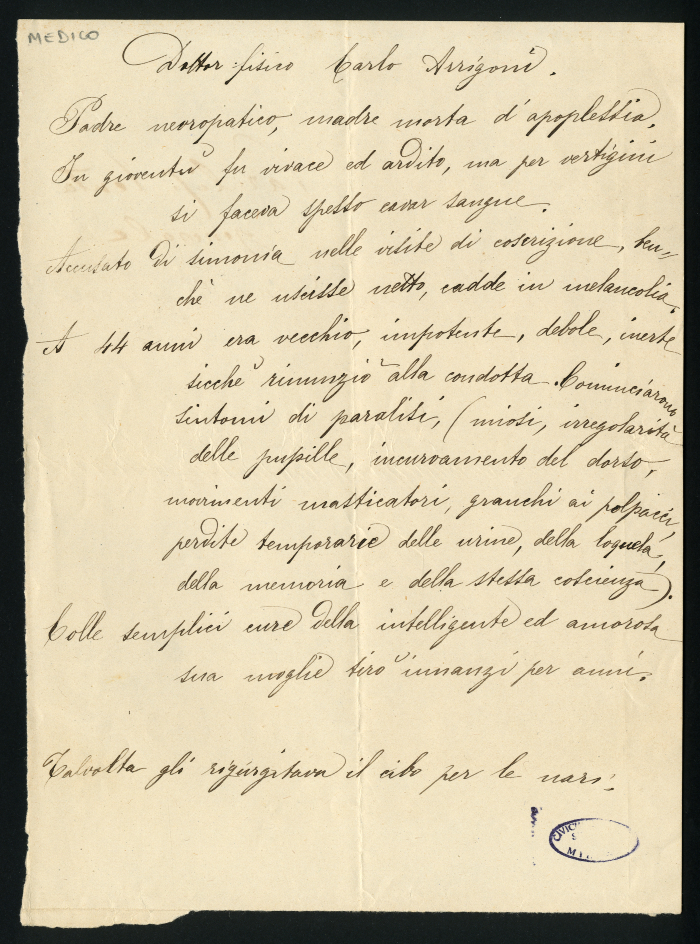 MEDICO
Dottor fisico Carlo Arrigoni.
Padre nevropatico, madre morta d'apoplessia.
In gioventù fu vivace ed ardito, ma per vertigini
si faceva spesso cavar sangue.
Accusato di simonia nelle visite di coscrizione, ben-
chè ne uscisse netto, cadde in melancolia.
A 44 anni era vecchio, impotente, debole, inerte
sicchè rinunziò alla condotta. Cominciarono
sintomi di paralisi, (miosi, irregolarità
delle pupille, incurvamento del dorso,
movimenti masticatori, granchi ai polpacci,
perdite temporarie delle urine, della loquela,
della memoria e della stessa coscienza).
Colle semplici cure della intelligente ed amorosa
sua moglie tirò innanzi per anni.
Talvolta gli rigurgitava il cibo per le nari.
CIVICO